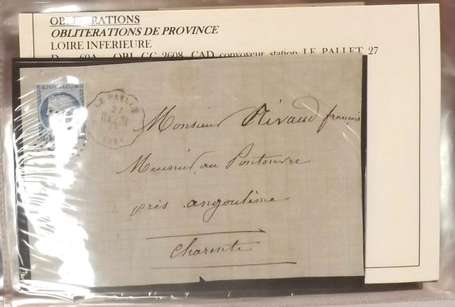 OBLITERATIONS
OBLITERES DE PROVINCE
LOIRE INFERIEURE
OBL GC 2608 CAD convoyeur station LE PALLET 27
LE PALLET
27
Monsieur Rivaud françois
Meunier au Pontouvre
près angoulême
Charente